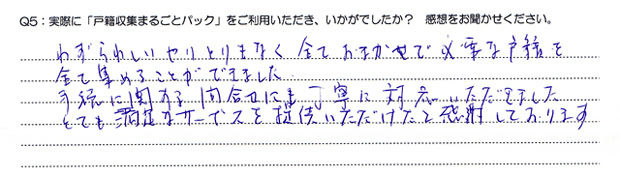 Q5：実際に「戸籍収集まるごとパック」をご利用いただき、いかがでしたか？ 感想をお聞かせください。
わずらわしいやりとりもなく全ておまかせで必要な戸籍を
全て集めることができました
手続に関する問合せにも丁寧に対応いただきました
とても満足なサービスを提供いただけたと感謝しております